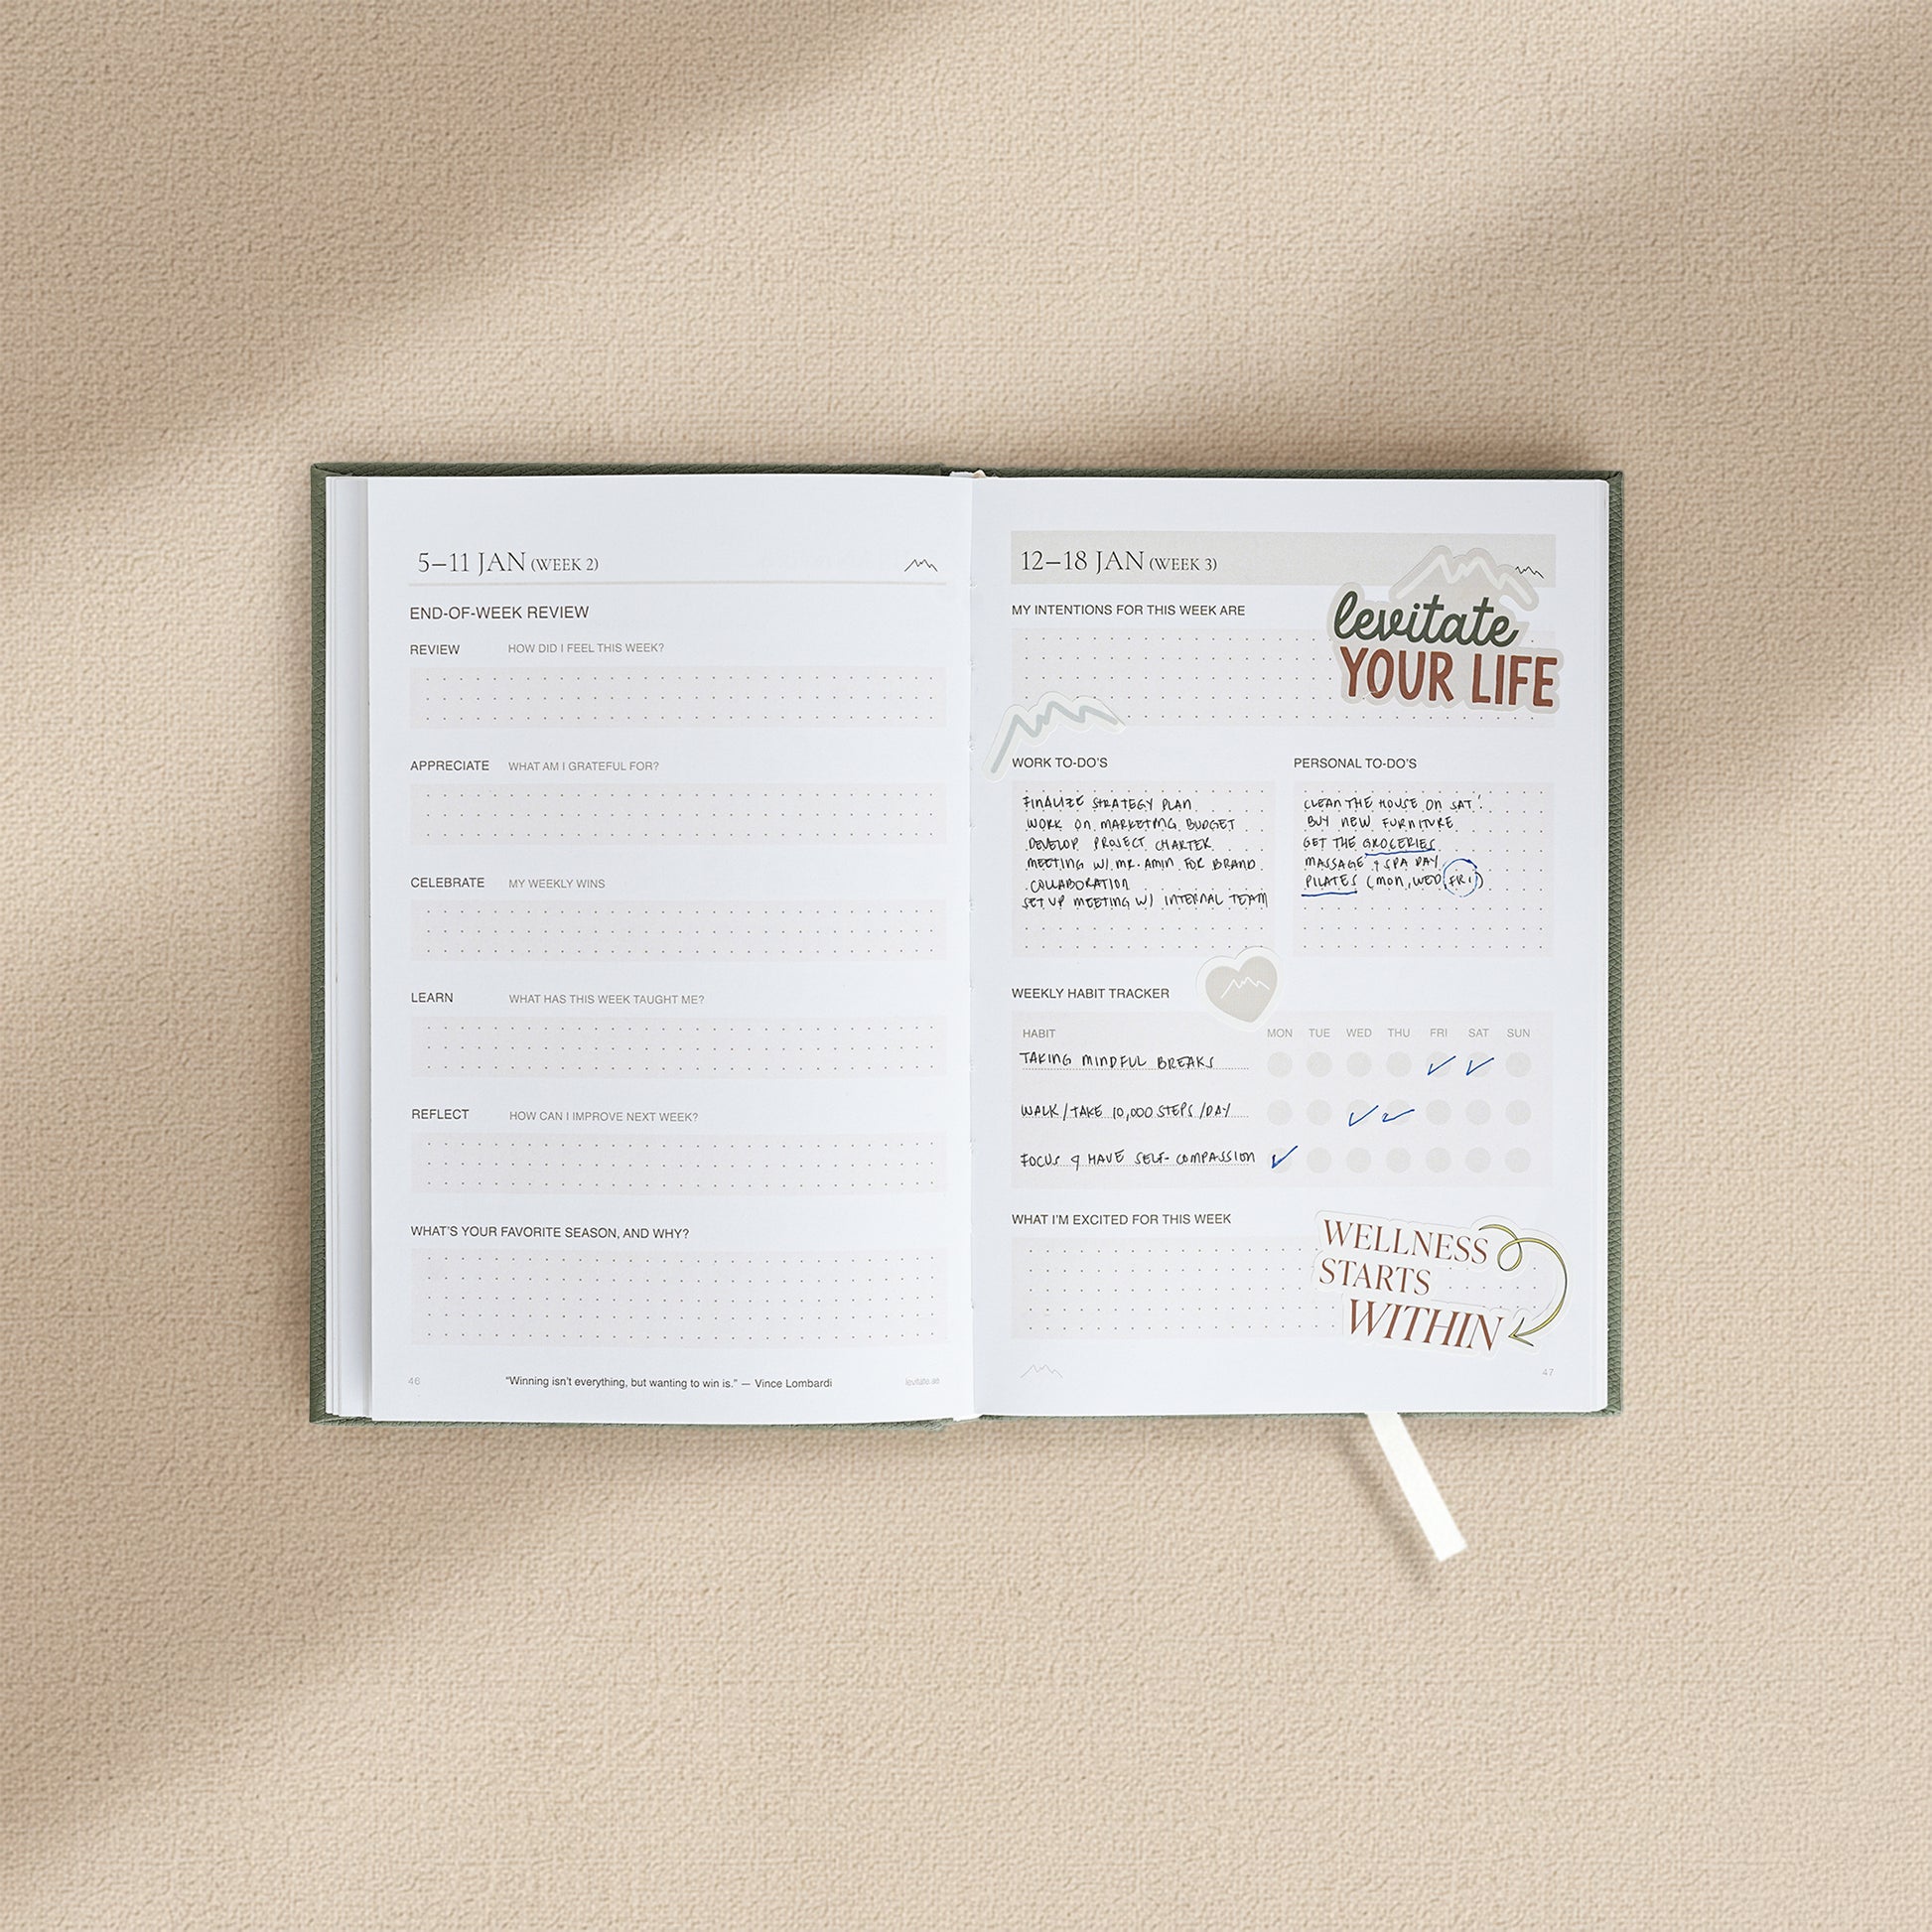 5–11 JAN (WEEK 2)
END-OF-WEEK REVIEW
REVIEW HOW DID I FEEL THIS WEEK?
APPRECIATE WHAT AM I GRATEFUL FOR?
CELEBRATE MY WEEKLY WINS
LEARN WHAT HAS THIS WEEK TAUGHT ME?
REFLECT HOW CAN I IMPROVE NEXT WEEK?
WHAT'S YOUR FAVORITE SEASON, AND WHY?
46 "Winning isn't everything, but wanting to win is." — Vince Lombardi levitate.ae
12–18 JAN (WEEK 3)
MY INTENTIONS FOR THIS WEEK ARE
levitate
YOUR LIFE
WORK TO-DO'S
FINALIZE STRATEGY PLAN
WORK ON MARKETING BUDGET
DEVELOP PROJECT CHARTER
MEETING W/ MR. AMIN FOR BRAND
COLLABORATION
SET UP MEETING W/ INTERNAL TEAM
PERSONAL TO-DO'S
CLEAN THE HOUSE ON SAT!
BUY NEW FURNITURE
GET THE GROCERIES
MASSAGE & SPA DAY
PILATES (MON, WED, FRI)
WEEKLY HABIT TRACKER
HABIT MON TUE WED THU FRI SAT SUN
TAKING MINDFUL BREAKS
WALK/TAKE 10,000 STEPS /DAY
FOCUS & HAVE SELF-COMPASSION
WHAT I'M EXCITED FOR THIS WEEK
WELLNESS
STARTS
WITHIN
47